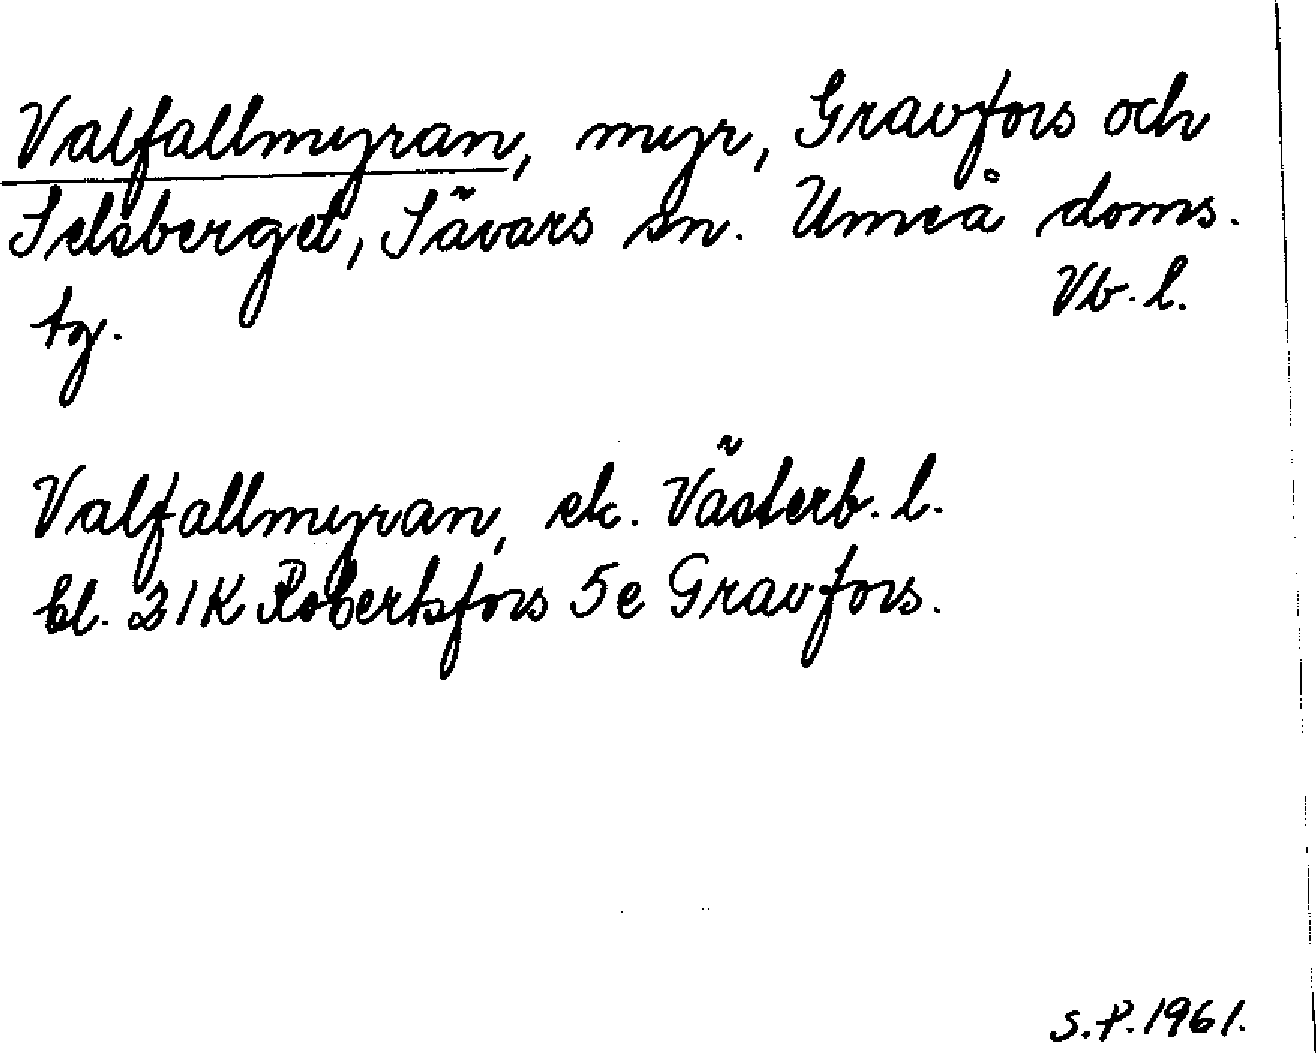 Valfallmyran, myr, Gravfors och
Selsberget, Sävars sn. Umeå doms.
tg. Vb. l.
Valfallmyran, ek. Västerb. l.
bl. 21K Robertsfors 5e Gravfors.
S.P. 1961.